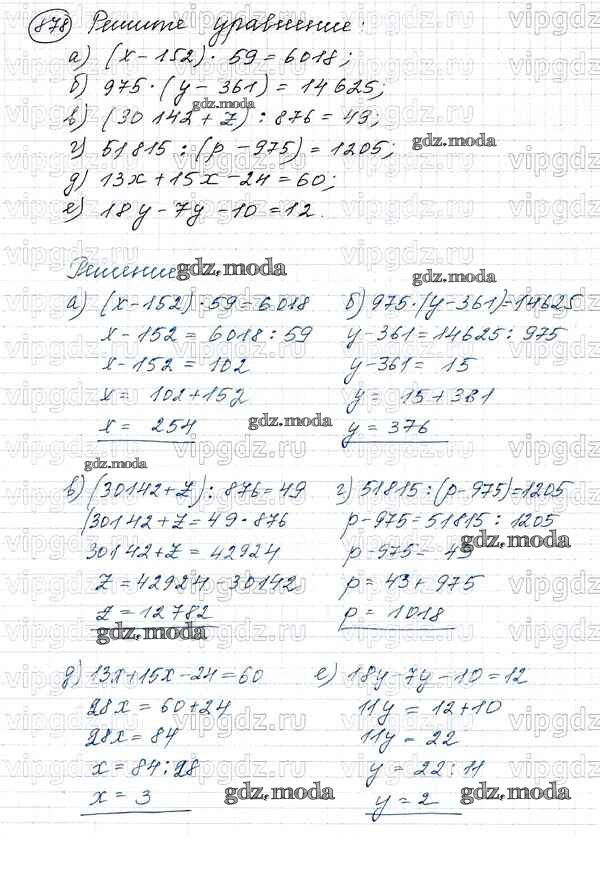 878 Решите уравнение:
а) (x-152)·59=6018;
б) 975·(y-361)=14625;
gdz.moda
в) (30142+z):876=49;
г) 51815:(p-975)=1205;
gdz.moda
д) 13x+15x-24=60;
е) 18y-7y-10=12.
Решение
gdz.moda
gdz.moda
а) (x-152)·59=6018
x-152=6018:59
x-152=102
x=102+152
x=254
gdz.moda
б) 975·(y-361)=14625
y-361=14625:975
y-361=15
y=15+361
y=376
gdz.moda
в) (30142+z):876=49
30142+z=49·876
30142+z=42924
z=42924-30142
z=12782
gdz.moda
г) 51815:(p-975)=1205
p-975=51815:1205
p-975=43
gdz.moda
p=43+975
p=1018
д) 13x+15x-24=60
28x=60+24
28x=84
x=84:28
x=3
gdz.moda
е) 18y-7y-10=12
11y=12+10
11y=22
y=22:11
y=2
gdz.moda
vipgdz.ru